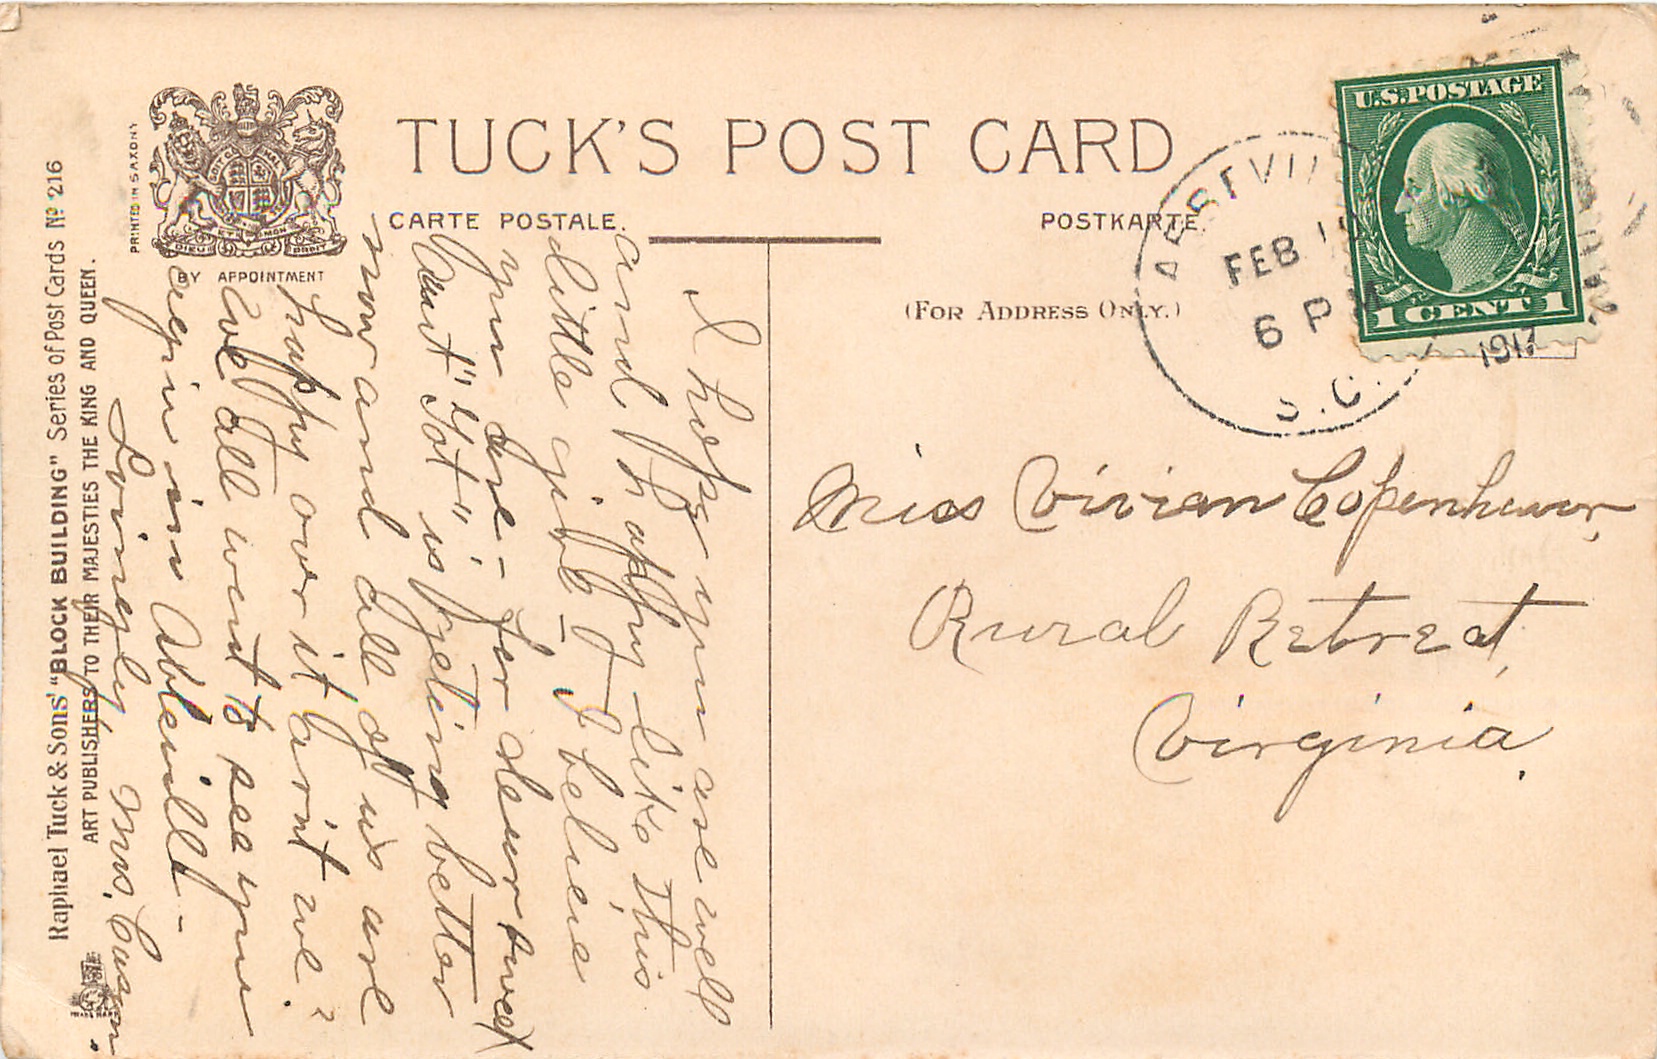 TUCK'S POST CARD
CARTE POSTALE.
POSTKARTE.
(FOR ADDRESS ONLY.)
PRINTED IN SAXONY
DIEU ET MON DROIT
BY APPOINTMENT
Raphael Tuck & Sons' "BLOCK BUILDING" Series of Post Cards No 216
ART PUBLISHERS TO THEIR MAJESTIES THE KING AND QUEEN.
U.S. POSTAGE
1 CENT 1
ABBEVILL
FEB
6 PM
1917
S.C.
Miss Vivian Copenhaver,
Rural Retreat,
Virginia.
I hope you are well
and happy like this
little girl – I believe
you are – for dear sweet
Aunt "Tot" is getting better
now and all of us are
happy over it, arn't we?
We all want to see you
again in Abbeville –
Lovingly Mrs.